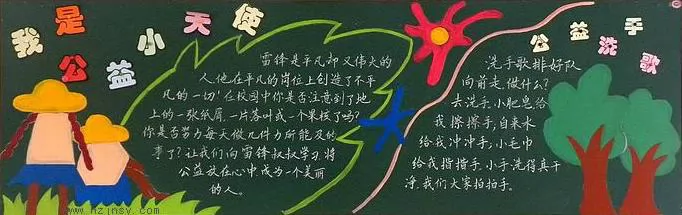 我是小天使
公益
雷锋是平凡却又伟大的
人,他在平凡的岗位上创造了不平
凡的一切!在校园中你是否注意到了地
上的一张纸屑一片落叶或一个果核了吗?
你是否努力每天做几件力所能及的
事了?让我们向雷锋叔叔学习,将
公益放在心中成为一个美丽
的人。
公益洗手歌
洗手歌排好队
向前走,做什么?
去洗手,小肥皂给
我擦擦手,自来水
给我冲冲手,小毛巾
给我揩揩手,小手洗得真干
净,我们大家拍拍手。
www.hzjnsy.com